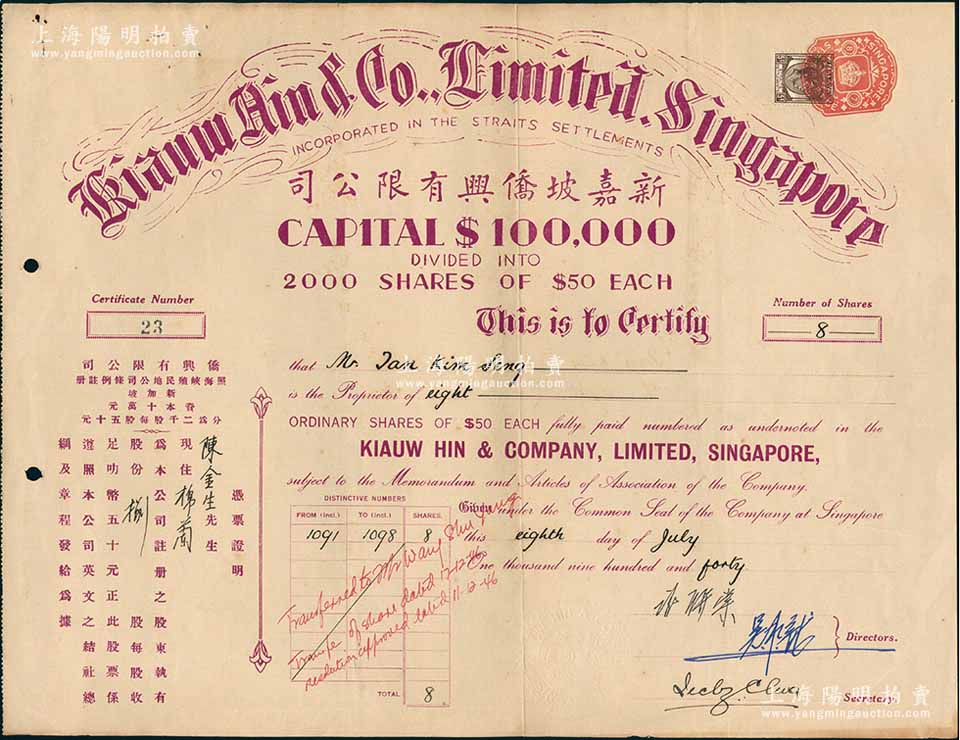 上海陽明拍賣
www.yangmingauction.com
Kiauw Hin & Co., Limited. Singapore
INCORPORATED IN THE STRAITS SETTLEMENTS
SINGAPORE
司公限有興僑坡嘉新
CAPITAL $ 100,000
DIVIDED INTO
2000 SHARES OF $50 EACH
Certificate Number
23
Number of Shares
8
This is to Certify
that Mr. Tan Kim Seng
is the Proprietor of eight
ORDINARY SHARES OF $50 EACH fully paid numbered as undernoted in the
KIAUW HIN & COMPANY, LIMITED, SINGAPORE,
subject to the Memorandum and Articles of Association of the Company.
DISTINCTIVE NUMBERS
FROM (incl.) TO (incl.) SHARES.
1091 1098 8
TOTAL 8
Given under the Common Seal of the Company at Singapore
this eighth day of July
One thousand nine hundred and forty
Transferred to Mr Wang
Transfer of share dated 12-12-46
resolution approved dated 11-12-46
Directors.
Secretary.
司公限有興僑
冊註例條司公地民殖峽海照
坡加新
元萬十本資
元十五股每股千二為分
憑票證明
陳金生先生
現住棉蘭
為本公司註冊之股東執有
股份捌
股每股收
足叻幣五十元正此票係
遵照本公司英文之結社總
綱及章程發給為據
上海陽明拍賣
www.yangmingauction.com